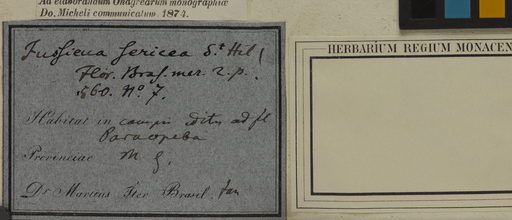 Ad elaborandum Onagrearum monographiæ
Do. Micheli communicatum. 1874.
HERBARIUM REGIUM MONACEN
Jussieua sericea St Hil (
Flor. Bras. mer. 2. p.
560. No 7.
Habitat in campis editis ad fl
Paraopeba
Provinciae M. G.
Dr Martius Iter Brasil. Jan